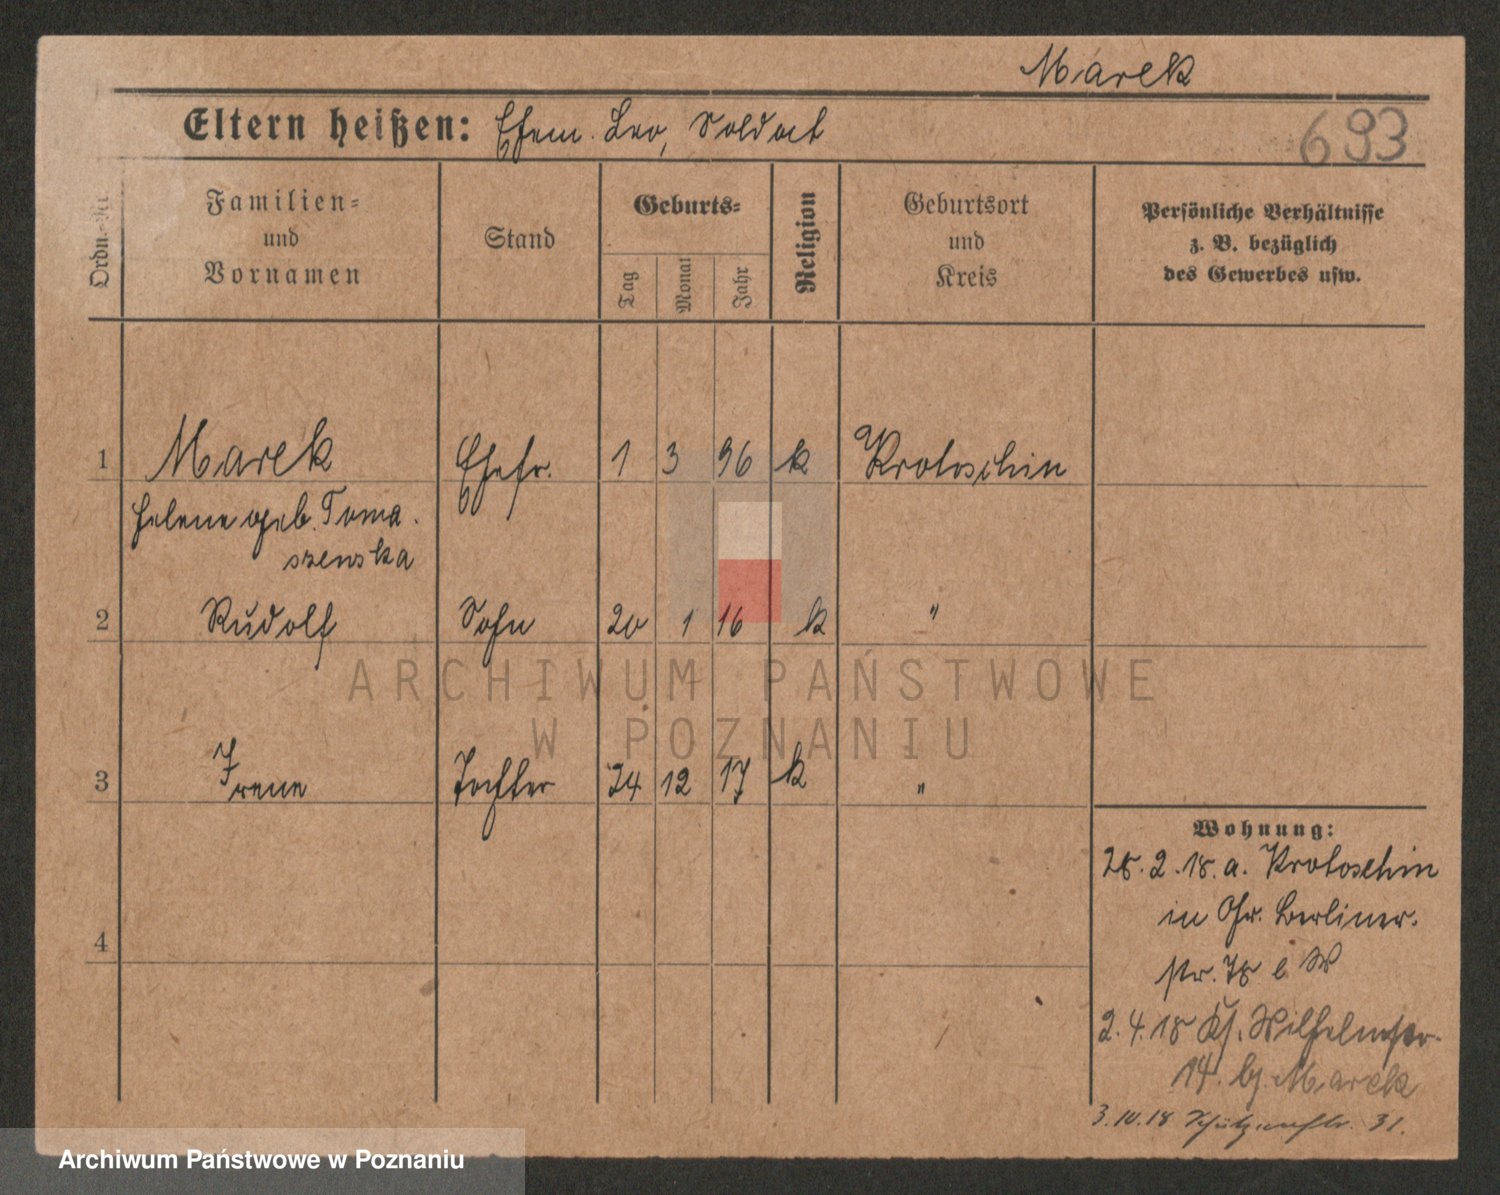 Marek
Eltern heißen: Ehem. Leo, Soldat
693
Ordn.-Nr.
Familien-
und
Vornamen
Stand
Geburts-
Tag
Monat
Jahr
Religion
Geburtsort
und
Kreis
Persönliche Verhältnisse
z. B. bezüglich
des Gewerbes usw.
1 Marek Ehefr. 1 3 96 k Krotoschin
Helene geb. Toma-
szewska
2 Rudolf Sohn 20 1 16 k "
3 Irene Tochter 24 12 17 k "
4
Wohnung:
28.2.18. a. Krotoschin
in Berliner-
str.
2.4.18 Wilhelmstr.
14. Marek
3.10.18 Schützenstr. 31.
ARCHIWUM PAŃSTWOWE
W POZNANIU
Archiwum Państwowe w Poznaniu